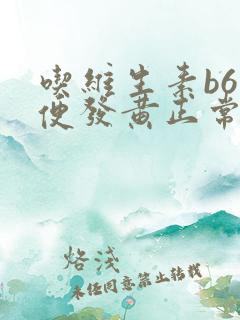 喫維生素b6
便發黃正常
烙淺
未经同意禁止转载